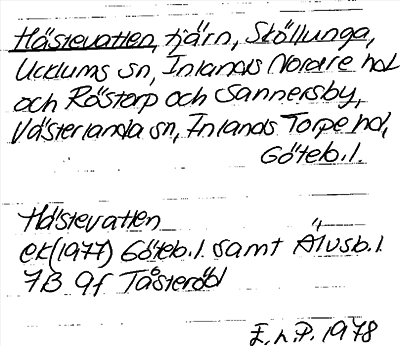 Hästevatten, tjärn, Sköllunga,
Ucklums sn, Inlands Nordre hd
och Röstorp och Sannersby,
Västerlanda sn, Inlands Torpe hd,
Göteb.l.
Hästevatten
ek(1977) Göteb.l. samt Älvsb.l
7B 9f Tåsteröd
E.h.P. 1978